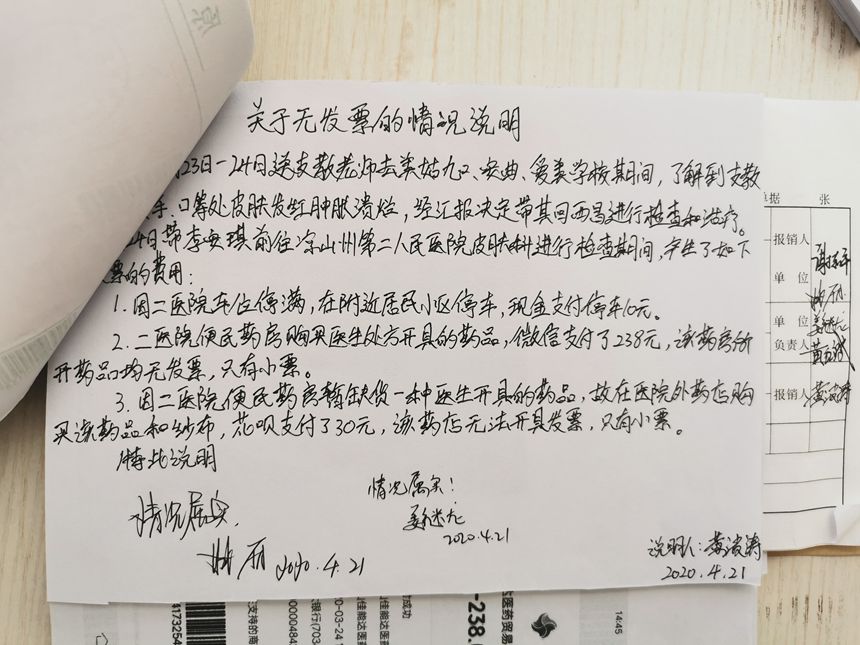 关于无发票的情况说明
23日-24日送支教老师去美姑九口、洛典、爱美学校期间，了解到支教
手、口等处皮肤发红肿胀溃烂，经汇报决定带其回西昌进行检查和治疗。
4日带李安琪前往凉山州第二人民医院皮肤科进行检查期间，产生了如下
票的费用：
1.因二医院车位停满，在附近居民小区停车，现金支付停车10元。
2.二医院便民药房购买医生处方开具的药品，微信支付了238元，该药房所
开药品均无发票，只有小票。
3.因二医院便民药房暂缺货一种医生开具的药品，故在医院外药店购
买该药品和纱布，花呗支付了30元，该药店无法开具发票，只有小票。
特此说明
情况属实！
情况属实.
2020.4.21
2020.4.21
说明人：黄波涛
2020.4.21
据 张
报销人
单 位
单 位
负责人
报销人
黄波涛
14:45
达医药贸易
-238.
成功
佳能达医药
20-03-24 1
银行(703
0000484
支持的商
4173254